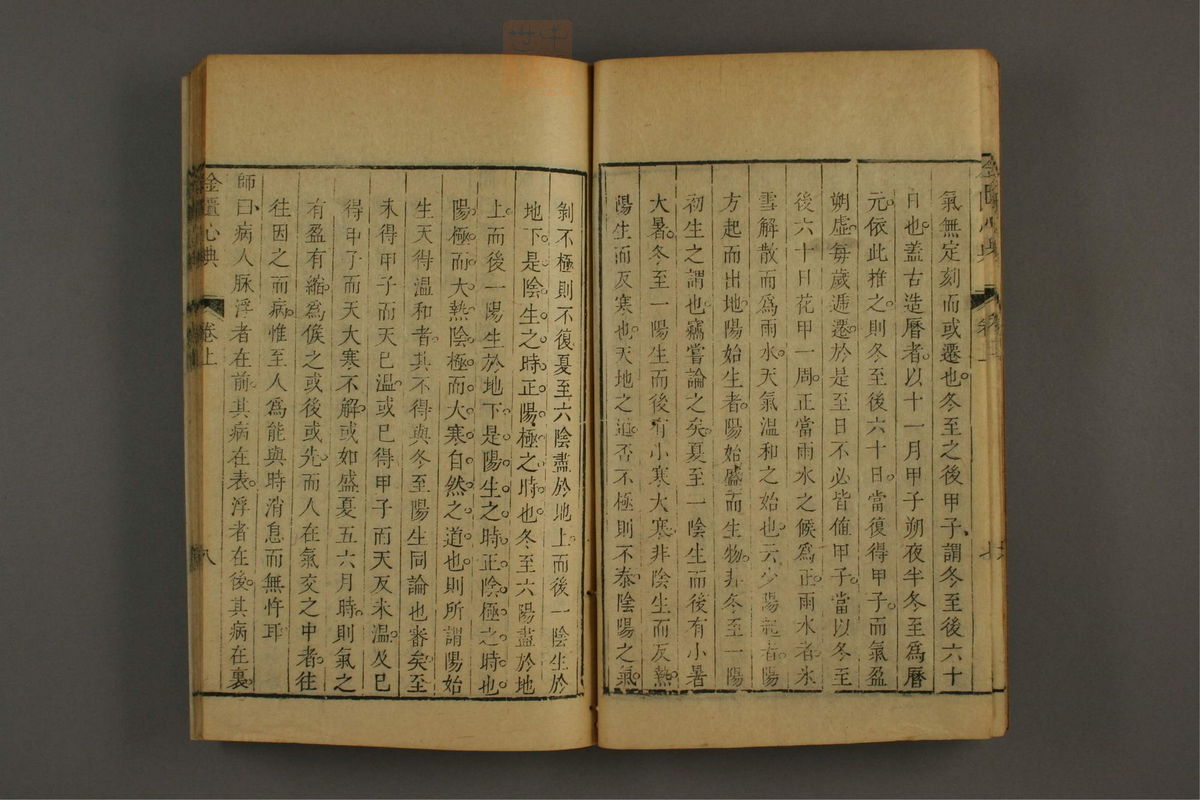 氣無定刻而或遷也冬至之後甲子謂冬至後六十
日也蓋古造曆者以十一月甲子朔夜半冬至爲曆
元依此推之則冬至後六十日當復得甲子而氣盈
朔虛每歲遞遷於是至日不必皆值甲子當以冬至
後六十日花甲一周正當雨水之候爲正雨水者冰
雪解散而爲雨水天氣溫和之始也云少陽起者陽
方起而出地陽始生者陽始盛而生物非冬至一陽
初生之謂也竊嘗論之矣夏至一陰生而後有小暑
大暑冬至一陽生而後有小寒大寒非陰生而反熱
陽生而反寒也天地之道否不極則不泰陰陽之氣
剝不極則不復夏至六陰盡於地上而後一陰生於
地下是陰生之時正陽極之時也冬至六陽盡於地
上而後一陽生於地下是陽生之時正陰極之時也
陽極而大熱陰極而大寒自然之道也則所謂陽始
生天得溫和者其不得與冬至陽生同論也審矣至
未得甲子而天已溫或已得甲子而天反未溫及已
得甲子而天大寒不解或如盛夏五六月時則氣之
有盈有縮爲候之或後或先而人在氣交之中者往
往因之而病惟至人爲能與時消息而無忤耳
師曰病人脉浮者在前其病在表浮者在後其病在裏
金匱心典
卷上
八